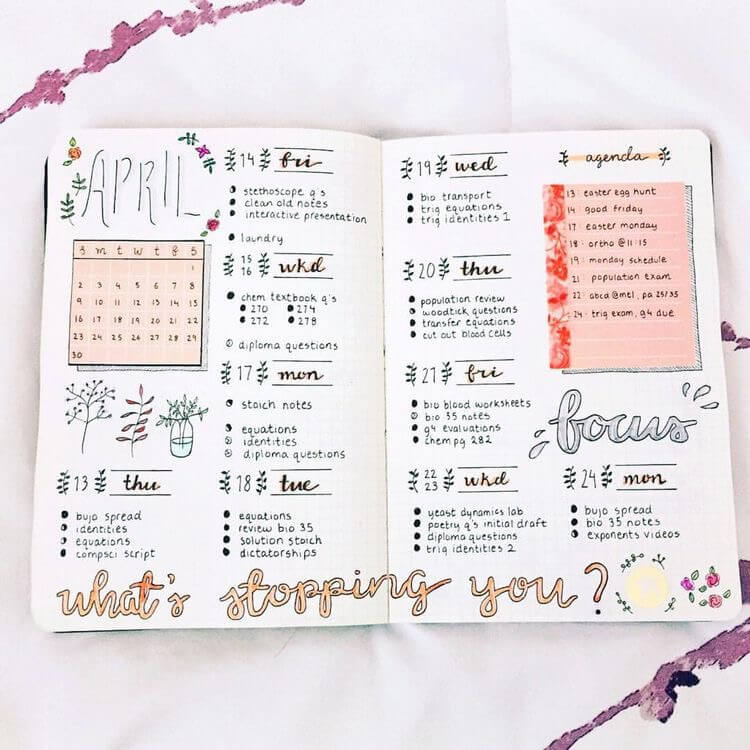 APRIL
S m t w t f S
1
2 3 4 5 6 7 8
9 10 11 12 13 14 15
16 17 18 19 20 21 22
23 24 25 26 27 28 29
30
13 thu
bujo spread
identities
equations
compsci script
14 fri
stethoscope q's
clean old notes
interactive presentation
laundry
15
16 wkd
chem textbook q's
270 274
272 278
diploma questions
17 mon
stoich notes
equations
identities
diploma questions
18 tue
equations
review bio 35
solution stoich
dictatorships
19 wed
bio transport
trig equations
trig identities 1
20 thu
population review
woodtick questions
transfer equations
cut out blood cells
21 fri
bio blood worksheets
bio 35 notes
g4 evaluations
chem pg 282
22
23 wkd
yeast dynamics lab
poetry q's initial draft
diploma questions
trig identities 2
agenda
13 : easter egg hunt
14 : good friday
17 : easter monday
18 : ortho @ 11:15
19 : monday schedule
21 : population exam
22 : abca @ mel, pa 25/35
24 : trig exam, g4 due
focus
24 mon
bujo spread
bio 35 notes
exponents videos
what's stopping you?